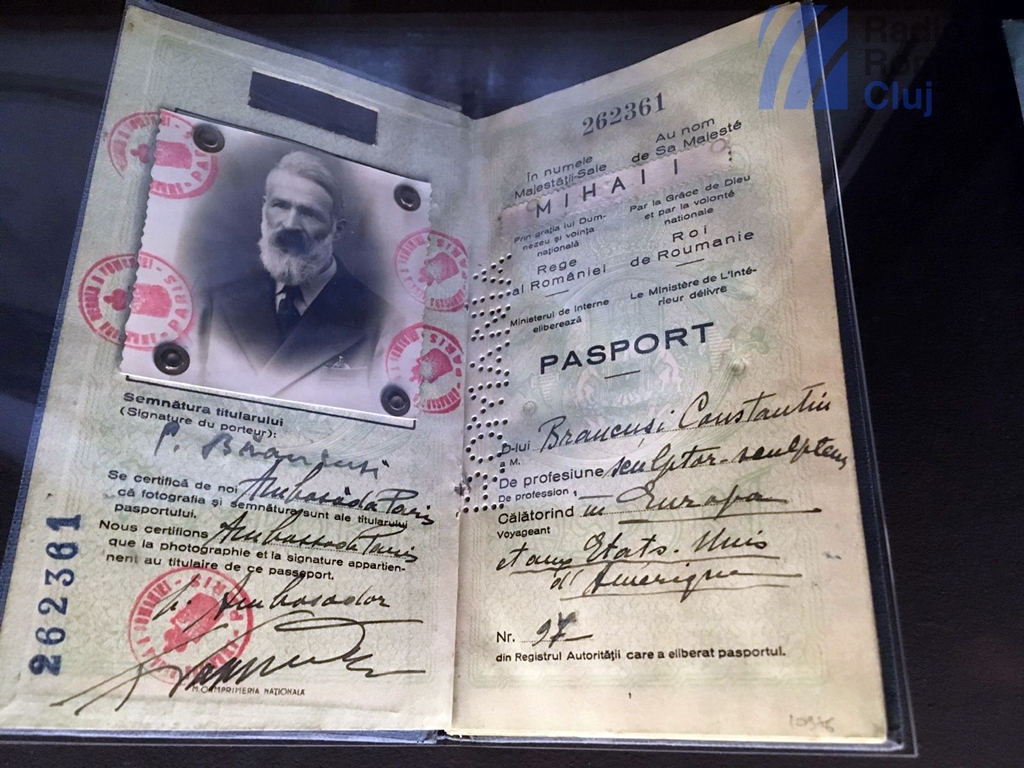 Radio
România
Cluj
Semnătura titularului
(Signature du porteur):
C. Brancusi
Se certifică de noi Ambasada Paris
că fotografia și semnătura sunt ale titularului
pasportului.
Nous certifions Ambassada Paris
que la photographie et la signature appartien-
nent au titulaire de ce passeport.
Ambasador
262361
IMPRIMERIA NAȚIONALĂ
262361
În numele
Majestății-Sale
Au nom
de Sa Majesté
MIHAI I
Prin grația lui Dum-
nezeu și voința
națională
Par la Grâce de Dieu
et par la volonté
nationale
Rege
al României
Roi
de Roumanie
Ministerul de Interne
eliberează
Le Ministère de L'Inté-
rieur délivre
PASPORT
D-lui Brancuși Constantin
a M.
De profesiune sculptor-sculpteur
De profession
Călătorind in Europa
Voyageant
et aux Etats-Unis
d'Amérique
Nr. 97
din Registrul Autorității care a eliberat pasportul.